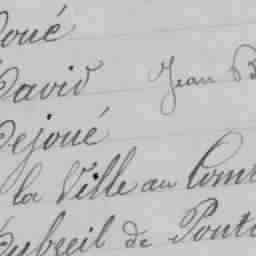 oué
David Jean B
Dejoué
la Ville au Com
Dubreil de Pont